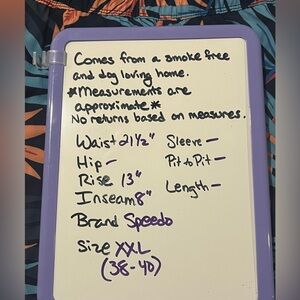 Comes from a smoke free
and dog loving home.
*Measurements are
approximate*
No returns based on measures.
Waist 21½"
Hip -
Rise 13"
Inseam 8"
Sleeve -
Pit to Pit -
Length -
Brand Speedo
Size XXL
(38-40)